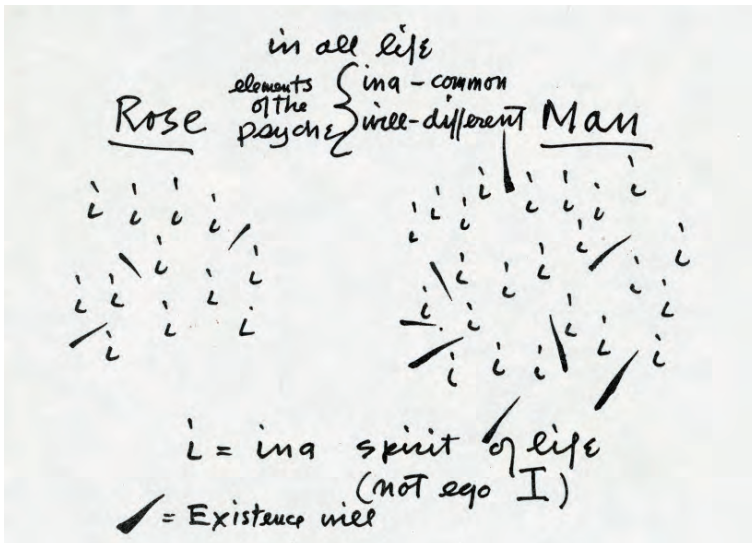 in all life
elements of the psyche { ina - common
will - different
Rose
Man
i i i i
i i
i i i i
i i i
i = ina spirit of life
(not ego I)
= Existence will